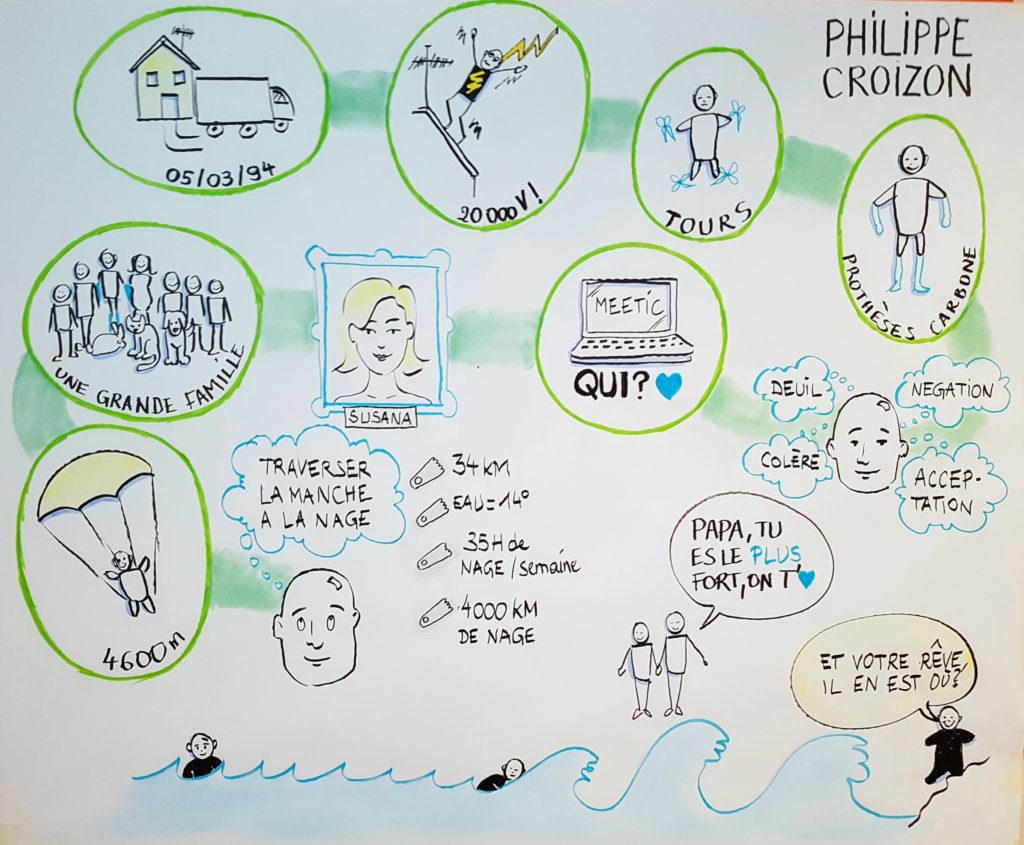 PHILIPPE
CROIZON
05/03/94
20 000 V!
TOURS
PROTHÈSES CARBONE
DEUIL
NEGATION
COLÈRE
ACCEP-
TATION
MEETIC
QUI?
SUSANA
UNE GRANDE FAMILLE
4600m
TRAVERSER
LA MANCHE
A LA NAGE
34 KM
EAU = 14°
35H de
NAGE / semaine
4000 KM
DE NAGE
PAPA, TU
ES LE PLUS
FORT, ON T'
ET VOTRE RÊVE,
IL EN EST OÙ?